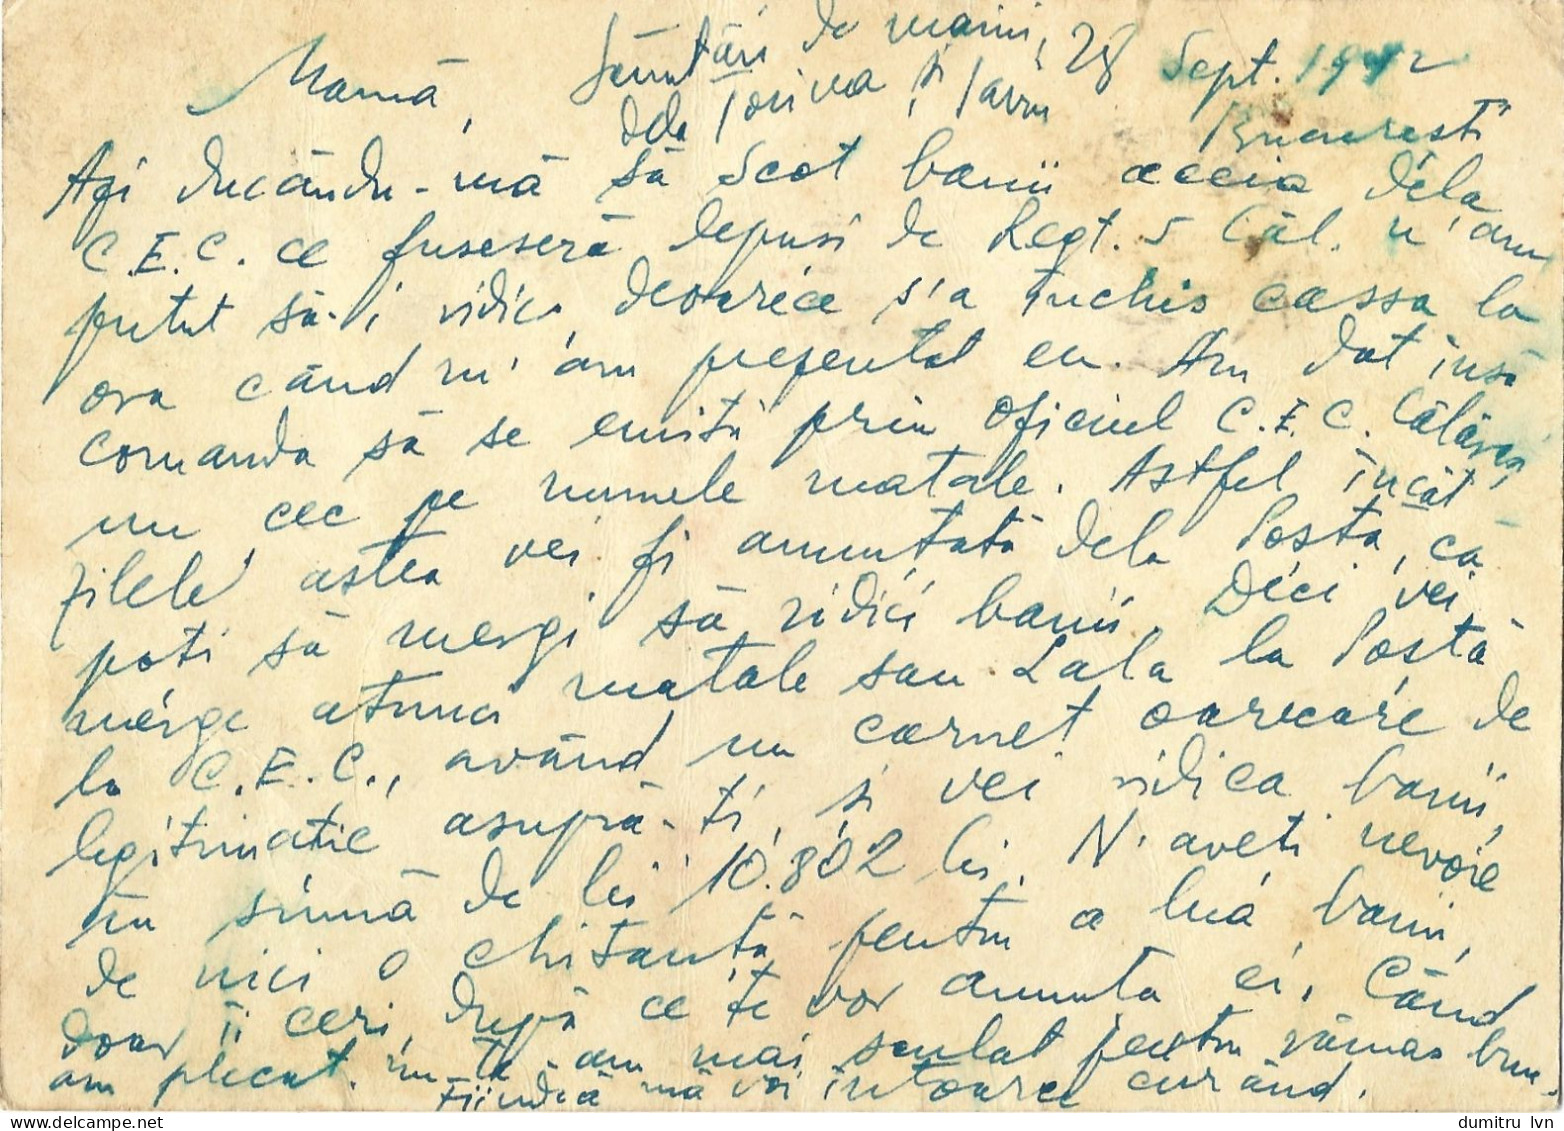 Sărutări de mâini, 28 Sept. 1942
Mamă,
dela și București
Azi ducându-mă să scot banii aceia dela
C.E.C. ce fuseseră depuși de Regt. 5 Căl. n'am
putut să-i ridic, deoarece s'a închis cassa la
ora când m'am prezentat eu. Am dat însă
comanda să se emită prin oficiul C.E.C. Călărași,
un cec pe numele matale. Astfel încât
zilele astea vei fi anunțată dela Poștă, că
poți să mergi să ridici banii. Deci vei
merge atunci matale sau Lala la Poștă
la C.E.C., având un carnet oarecare de
legitimație asupră-ți, și vei ridica banii,
în sumă de lei 10.802 lei. N'aveți nevoie
de nici o chitanță pentru a lua banii,
doar îi ceri, după ce te vor anunța ei. Când
am plecat, nu te-am mai sculat pentru rămas bun
fiindcă mă voi întoarce curând.
dumitru_lvn